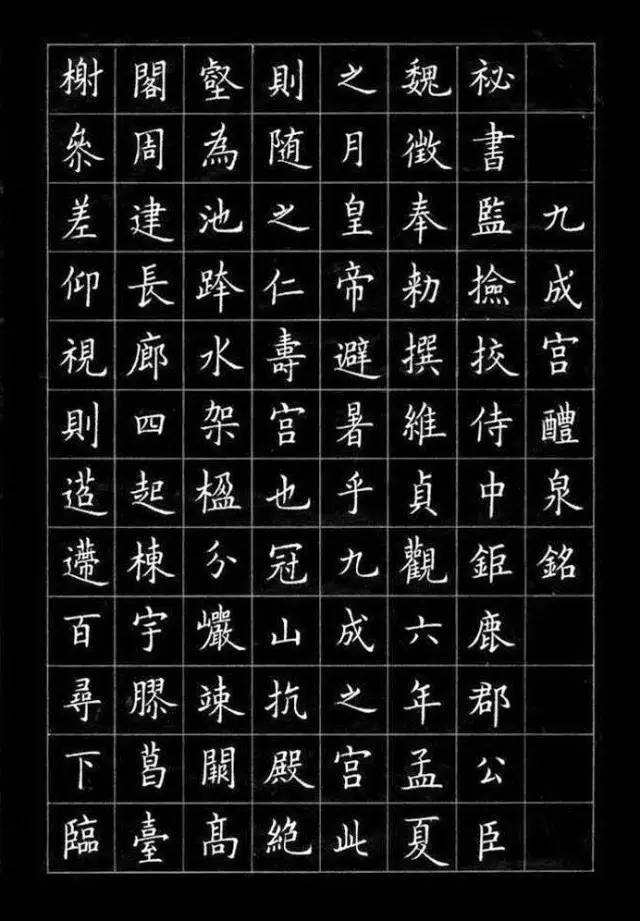 九成宫醴泉銘
祕書監撿挍侍中鉅鹿郡公臣
魏徴奉勑撰維貞觀六年孟夏
之月皇帝避暑乎九成之宫此
則随之仁壽宫也冠山抗殿絶
壑為池跨水架楹分巗竦闕髙
閣周建長廊四起棟宇膠葛臺
榭叅差仰視則迢遰百尋下臨